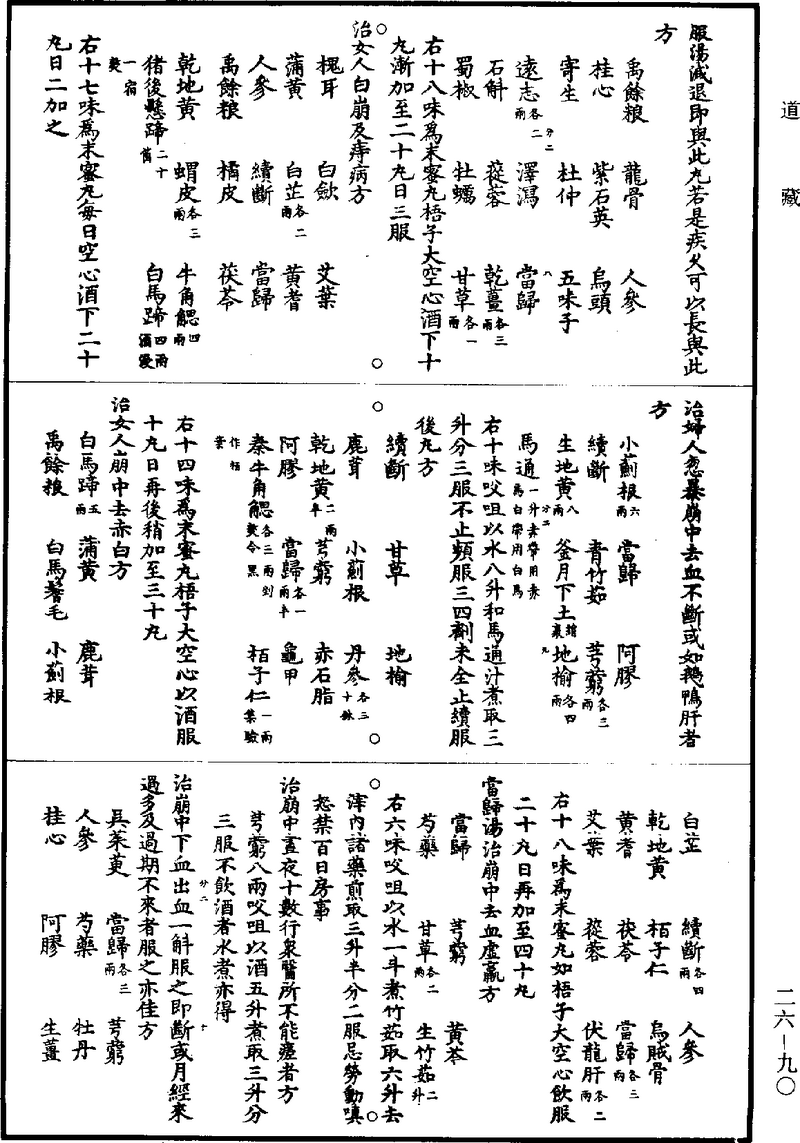 道藏
服湯減退即與此丸若是疾久可以長與此
方
禹餘粮 龍骨 人參
桂心 紫石英 烏頭
寄生 杜仲 五味子
遠志各二兩 澤瀉 當歸
石斛 蓯蓉 乾薑各三兩
蜀椒 牡蠣 甘草各一兩
右十八味為末蜜丸梧子大空心酒下十
丸漸加至二十丸日三服
治女人白崩及痔病方
槐耳 白歛 艾葉
蒲黃 白芷各二兩 黃耆
人參 續斷 當歸
禹餘粮 橘皮 茯苓
乾地黃 蝟皮各三兩 牛角䚡四兩
猪後懸蹄二十箇 白馬蹄四兩酒浸
一宿熬
右十七味為末蜜丸每日空心酒下二十
丸日二加之
治婦人忽暴崩中去血不斷或如鵝鴨肝者
方
小薊根六兩 當歸 阿膠
續斷 青竹茹 芎藭各三兩
生地黃八兩 釜月下土絹裹 地榆各四兩
馬通一升赤帶用赤馬白帶用白馬
右十味㕮咀以水八升和馬通汁煮取三
升分三服不止頻服三四劑未全止續服
後丸方
續斷 甘草 地榆
鹿茸 小薊根 丹參各三十銖
乾地黃二兩半 芎藭 赤石脂
阿膠 當歸各一兩半 龜甲
秦牛角䚡各三兩剉熬令黑 栢子仁一兩集驗
作栢葉
右十四味為末蜜丸梧子大空心以酒服
十丸日再後稍加至三十丸
治女人崩中去赤白方
白馬蹄五兩 蒲黃 鹿茸
禹餘粮 白馬鬐毛 小薊根
白芷 續斷各四兩 人參
乾地黃 栢子仁 烏賊骨
黃耆 茯苓 當歸各三兩
艾葉 蓯蓉 伏龍肝各二兩
右十八味為末蜜丸如梧子大空心飲服
二十丸日再加至四十丸
當歸湯治崩中去血虛羸方
當歸 芎藭 黃芩
芍藥 甘草各二兩 生竹茹二升
右六味㕮咀以水一斗煮竹茹取六升去
滓內諸藥煎取三升半分二服忌勞動嗔
怒禁百日房事
治崩中晝夜十數行衆醫所不能瘥者方
芎藭八兩㕮咀以酒五升煮取三升分
三服不飲酒者水煮亦得
治崩中下血出血一斛服之即斷或月經來
過多及過期不來者服之亦佳方
吳茱萸 當歸各三兩 芎藭
人參 芍藥 牡丹
桂心 阿膠 生薑
二六—九〇